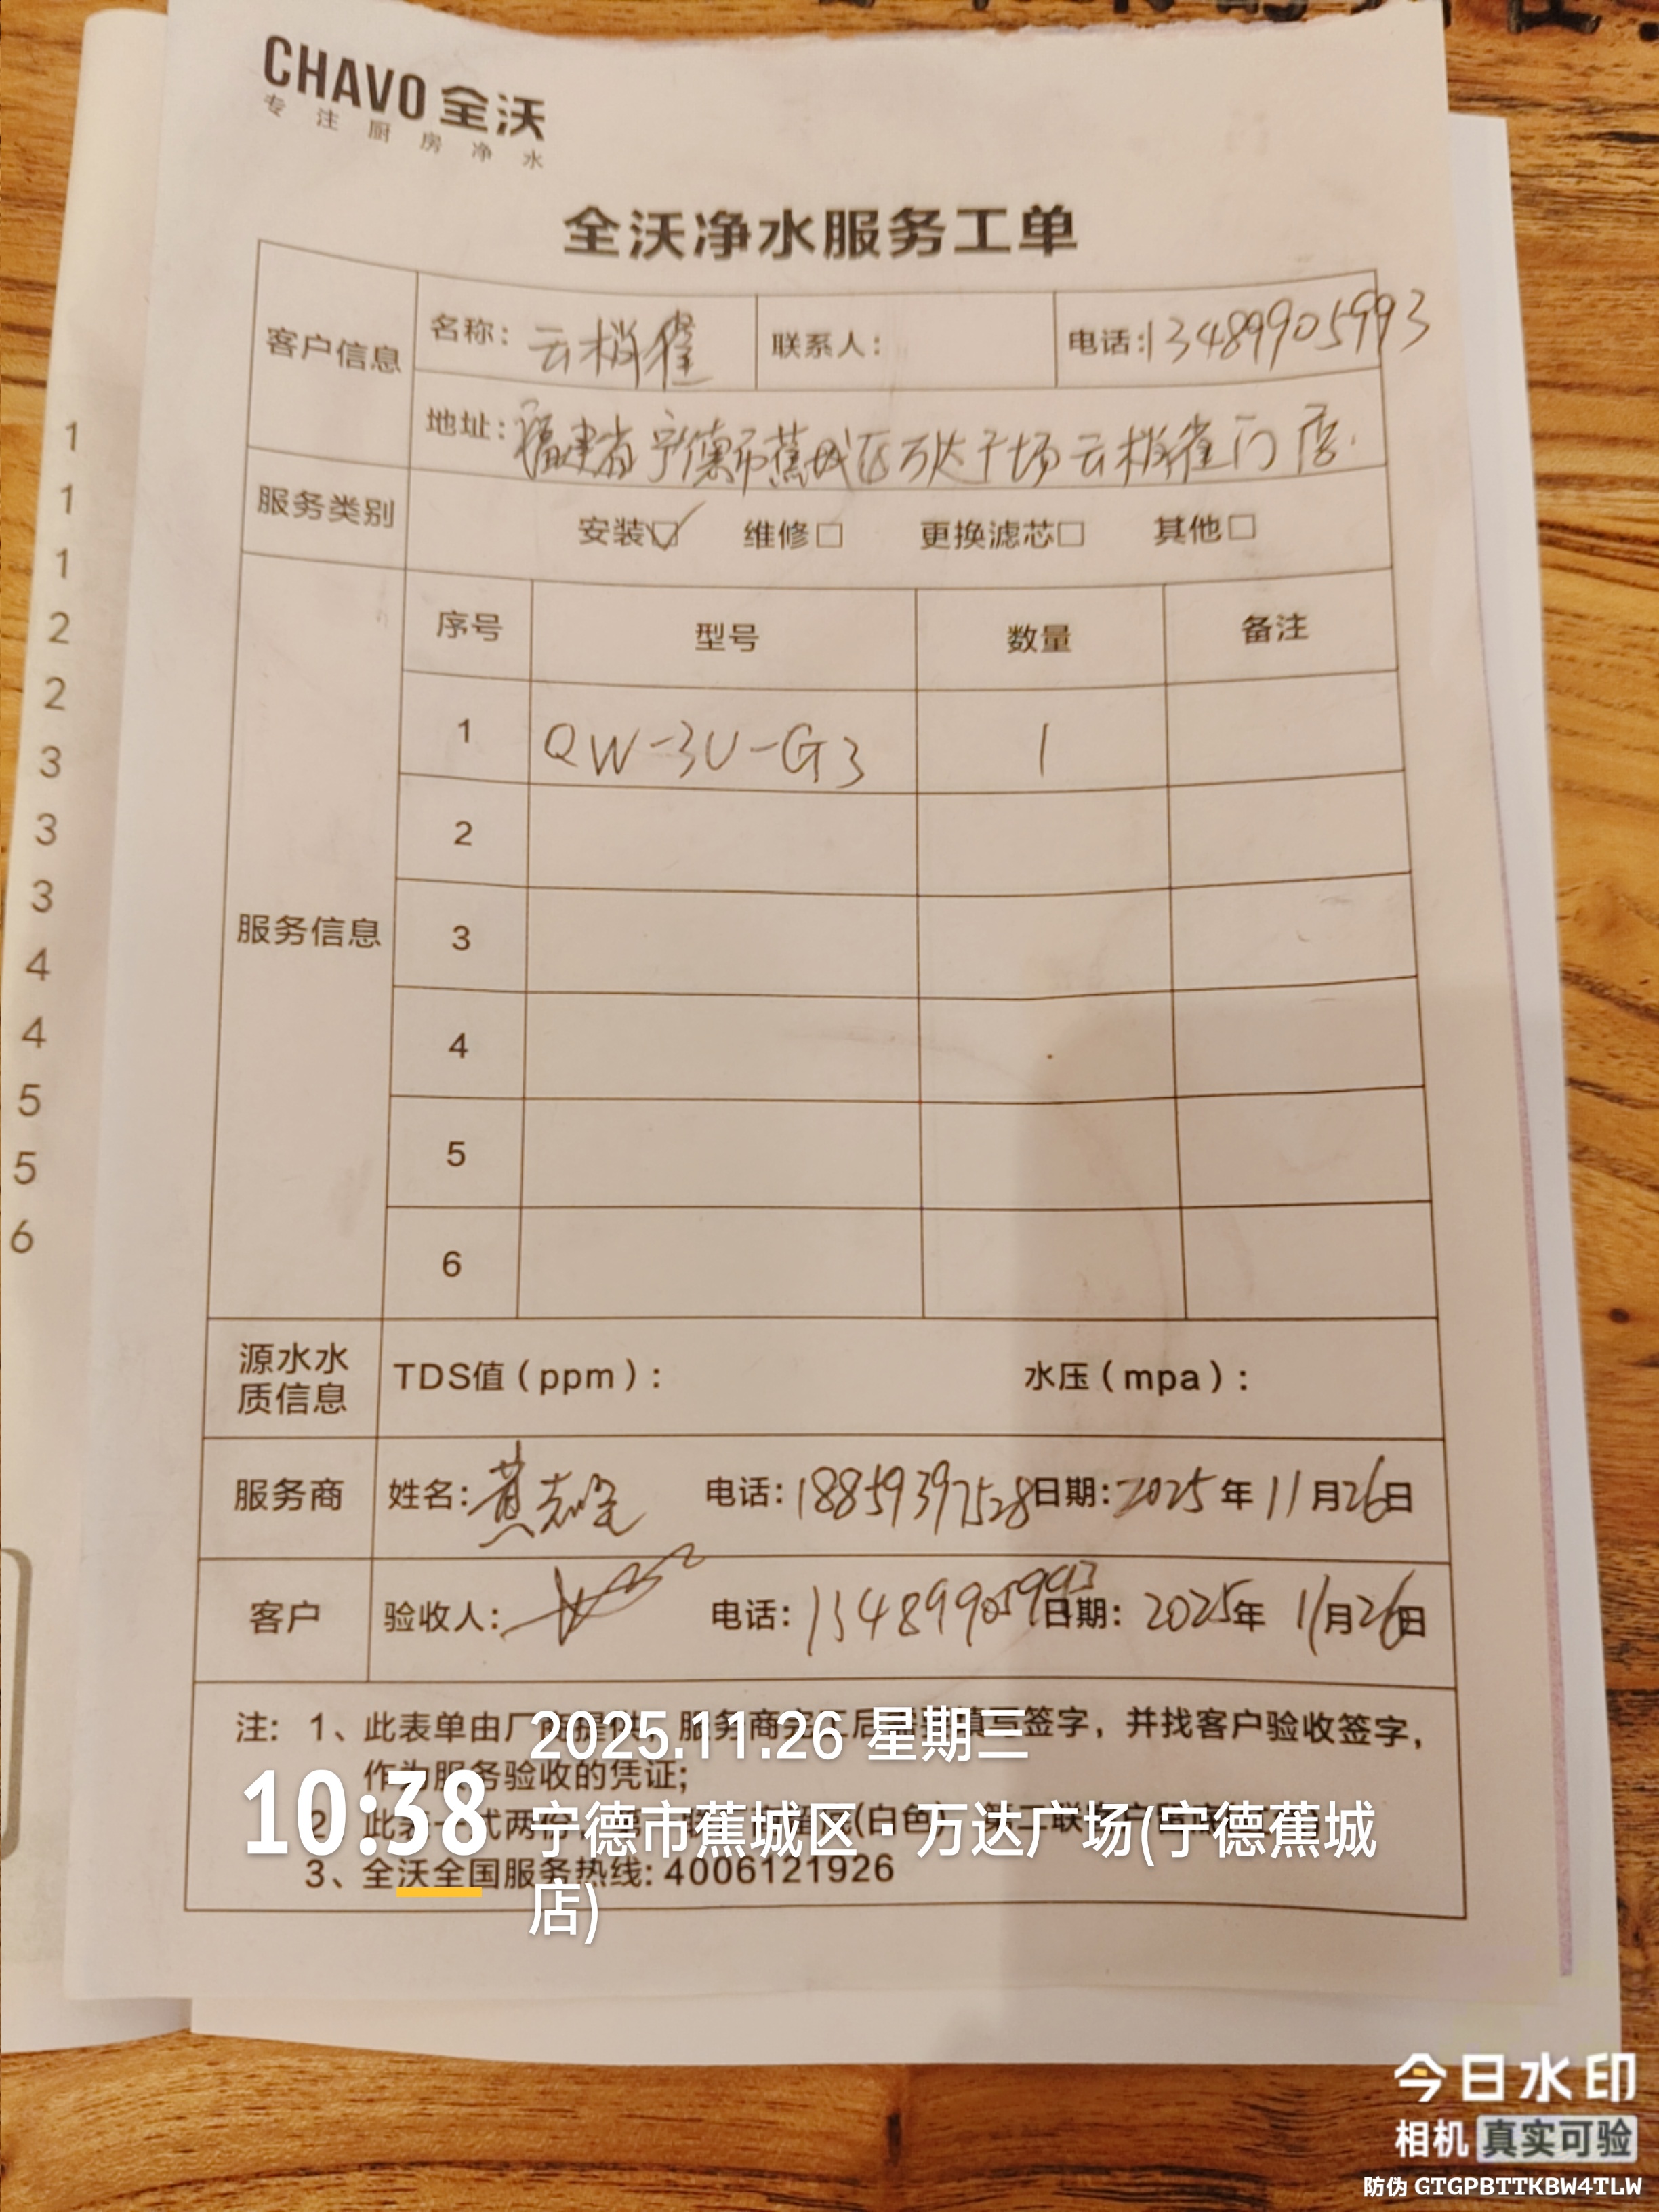 CHAVO 全沃
专注厨房净水
全沃净水服务工单
客户信息
名称：云梢雀
联系人：
电话：13489905993
地址：福建省宁德市蕉城区万达广场云梢雀门店.
服务类别
安装☑ 维修□ 更换滤芯□ 其他□
服务信息
序号 型号 数量 备注
1 QW-3U-G3 1
2
3
4
5
6
源水水质信息
TDS值（ppm）： 水压（mpa）：
服务商 姓名：黄志 电话：18859397528 日期：2025年11月26日
客户 验收人： 电话：13489905993 日期：2025年11月26日
注：1、此表单由厂 服务商 后 签字，并找客户验收签字，
作为服务验收的凭证；
2、此 式两 (白色) 第二联
3、全沃全国服务热线：4006121926
10:38
2025.11.26 星期三
宁德市蕉城区·万达广场(宁德蕉城店)
1
1
1
2
2
3
3
3
4
4
5
5
6
今日水印
相机 真实可验
防伪 GTGPBTTKBW4TLW